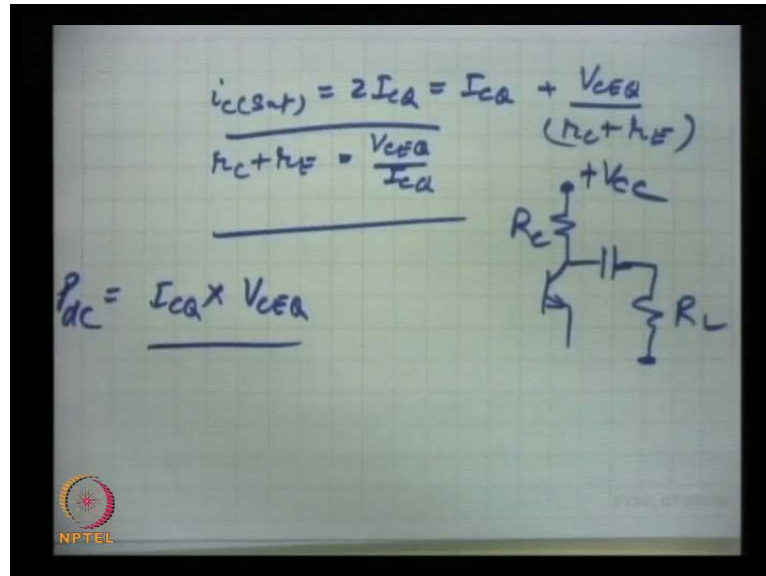 i_C(Sat) = 2I_CQ = I_CQ + V_CEQ / (r_C + r_E)
r_C + r_E = V_CEQ / I_CQ
+V_CC
R_C
P_dC = I_CQ × V_CEQ
R_L
NPTEL